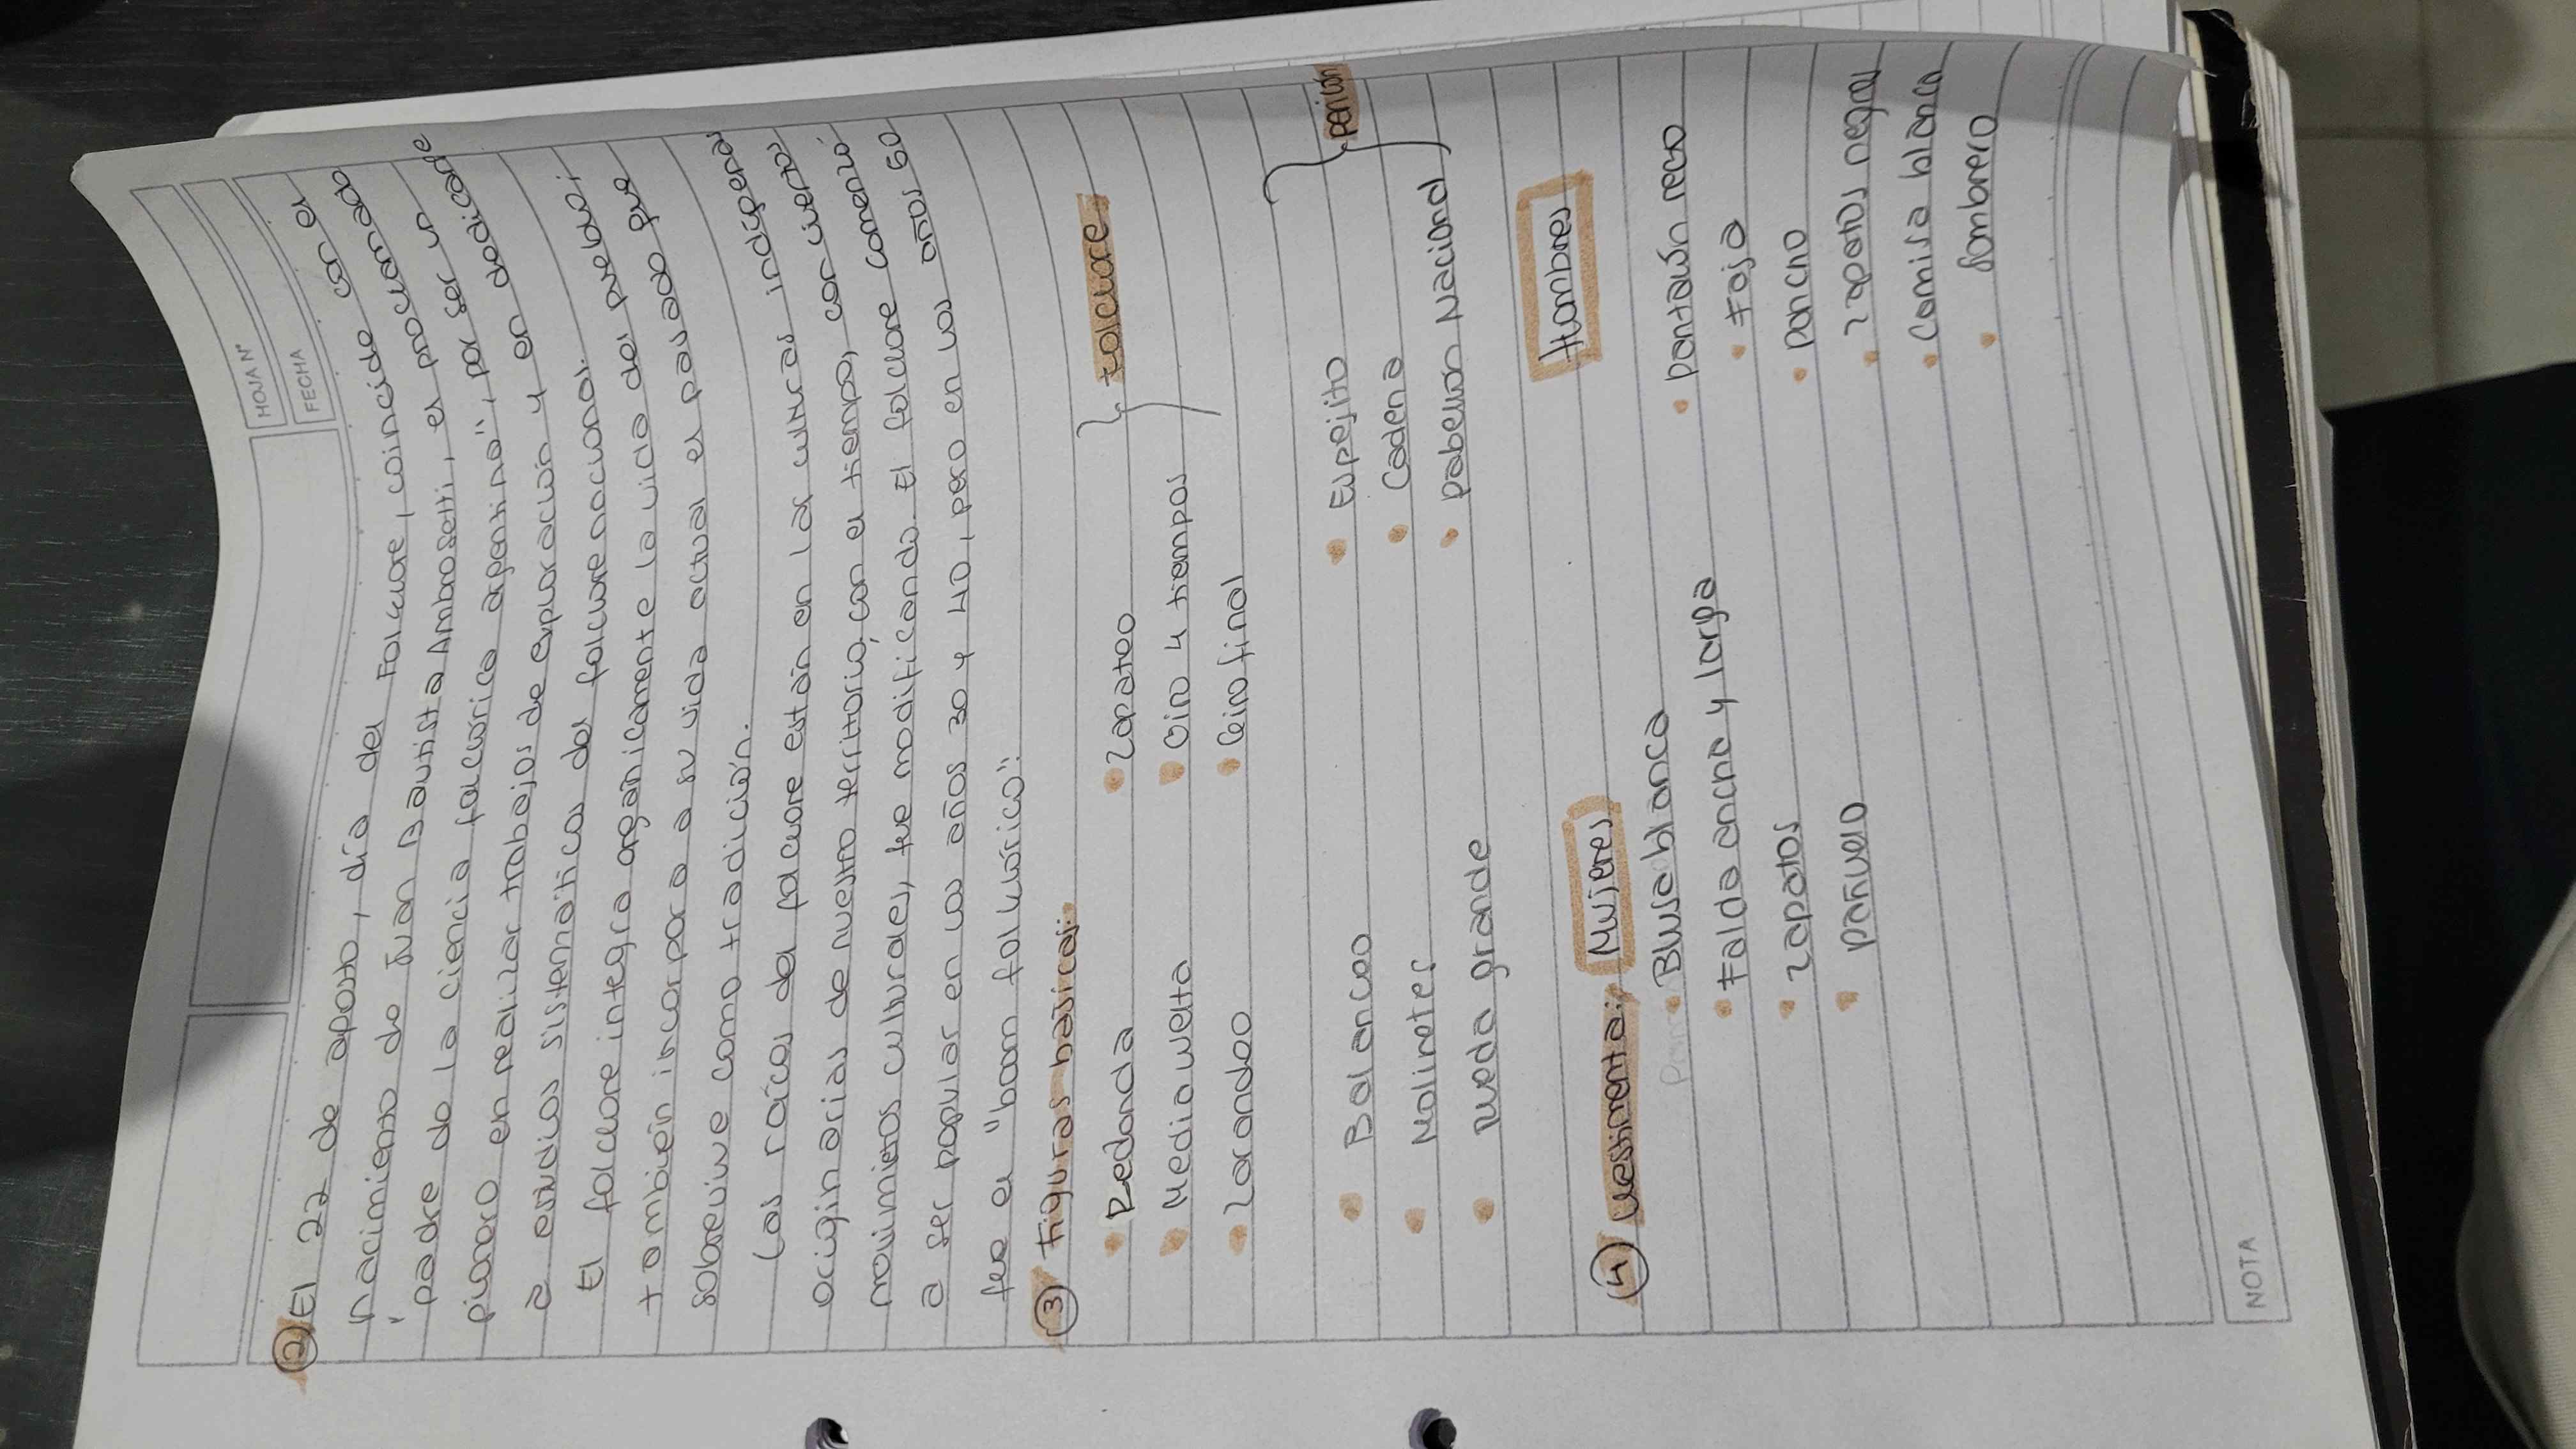 HOJA Nº
FECHA
② El 22 de agosto, día del Folclore, coincide con el
nacimiento de Juan Bautista Ambrosetti, el proclamado
"padre de la ciencia folclórica argentina", por ser un
pionero en realizar trabajos de exploración y en dedicarse
a estudios sistemáticos del folclore nacional.
El folclore integra orgánicamente la vida del pueblo;
también incorpora a su vida actual el pasado que
sobrevive como tradición.
Las raíces del folclore están en las culturas indígenas
originarias de nuestro territorio, con el tiempo, con ciertos
movimietos culturales, fue modificando. El folclore comenzó
a ser popular en los años 30 y 40, pero en los años 60
fue el "boom folklórico".
③ Figuras basicas:
• Redonda • Zapateo
• Media vuelta • Giro 4 tiempos folclore
• Zarandeo • Geiro final
• Balanceo • Espejito pericón
• Molinetes • Cadena
• Rueda grande • Pabellon Nacional
④ Vestimenta: Mujeres Hombres
• Blusa blanca • Pantalón recto
• Falda ancha y larga • Faja
• Zapatos • Poncho
• Pañuelo • Zapatos negros
• Camisa blanca
• Sombrero
NOTA